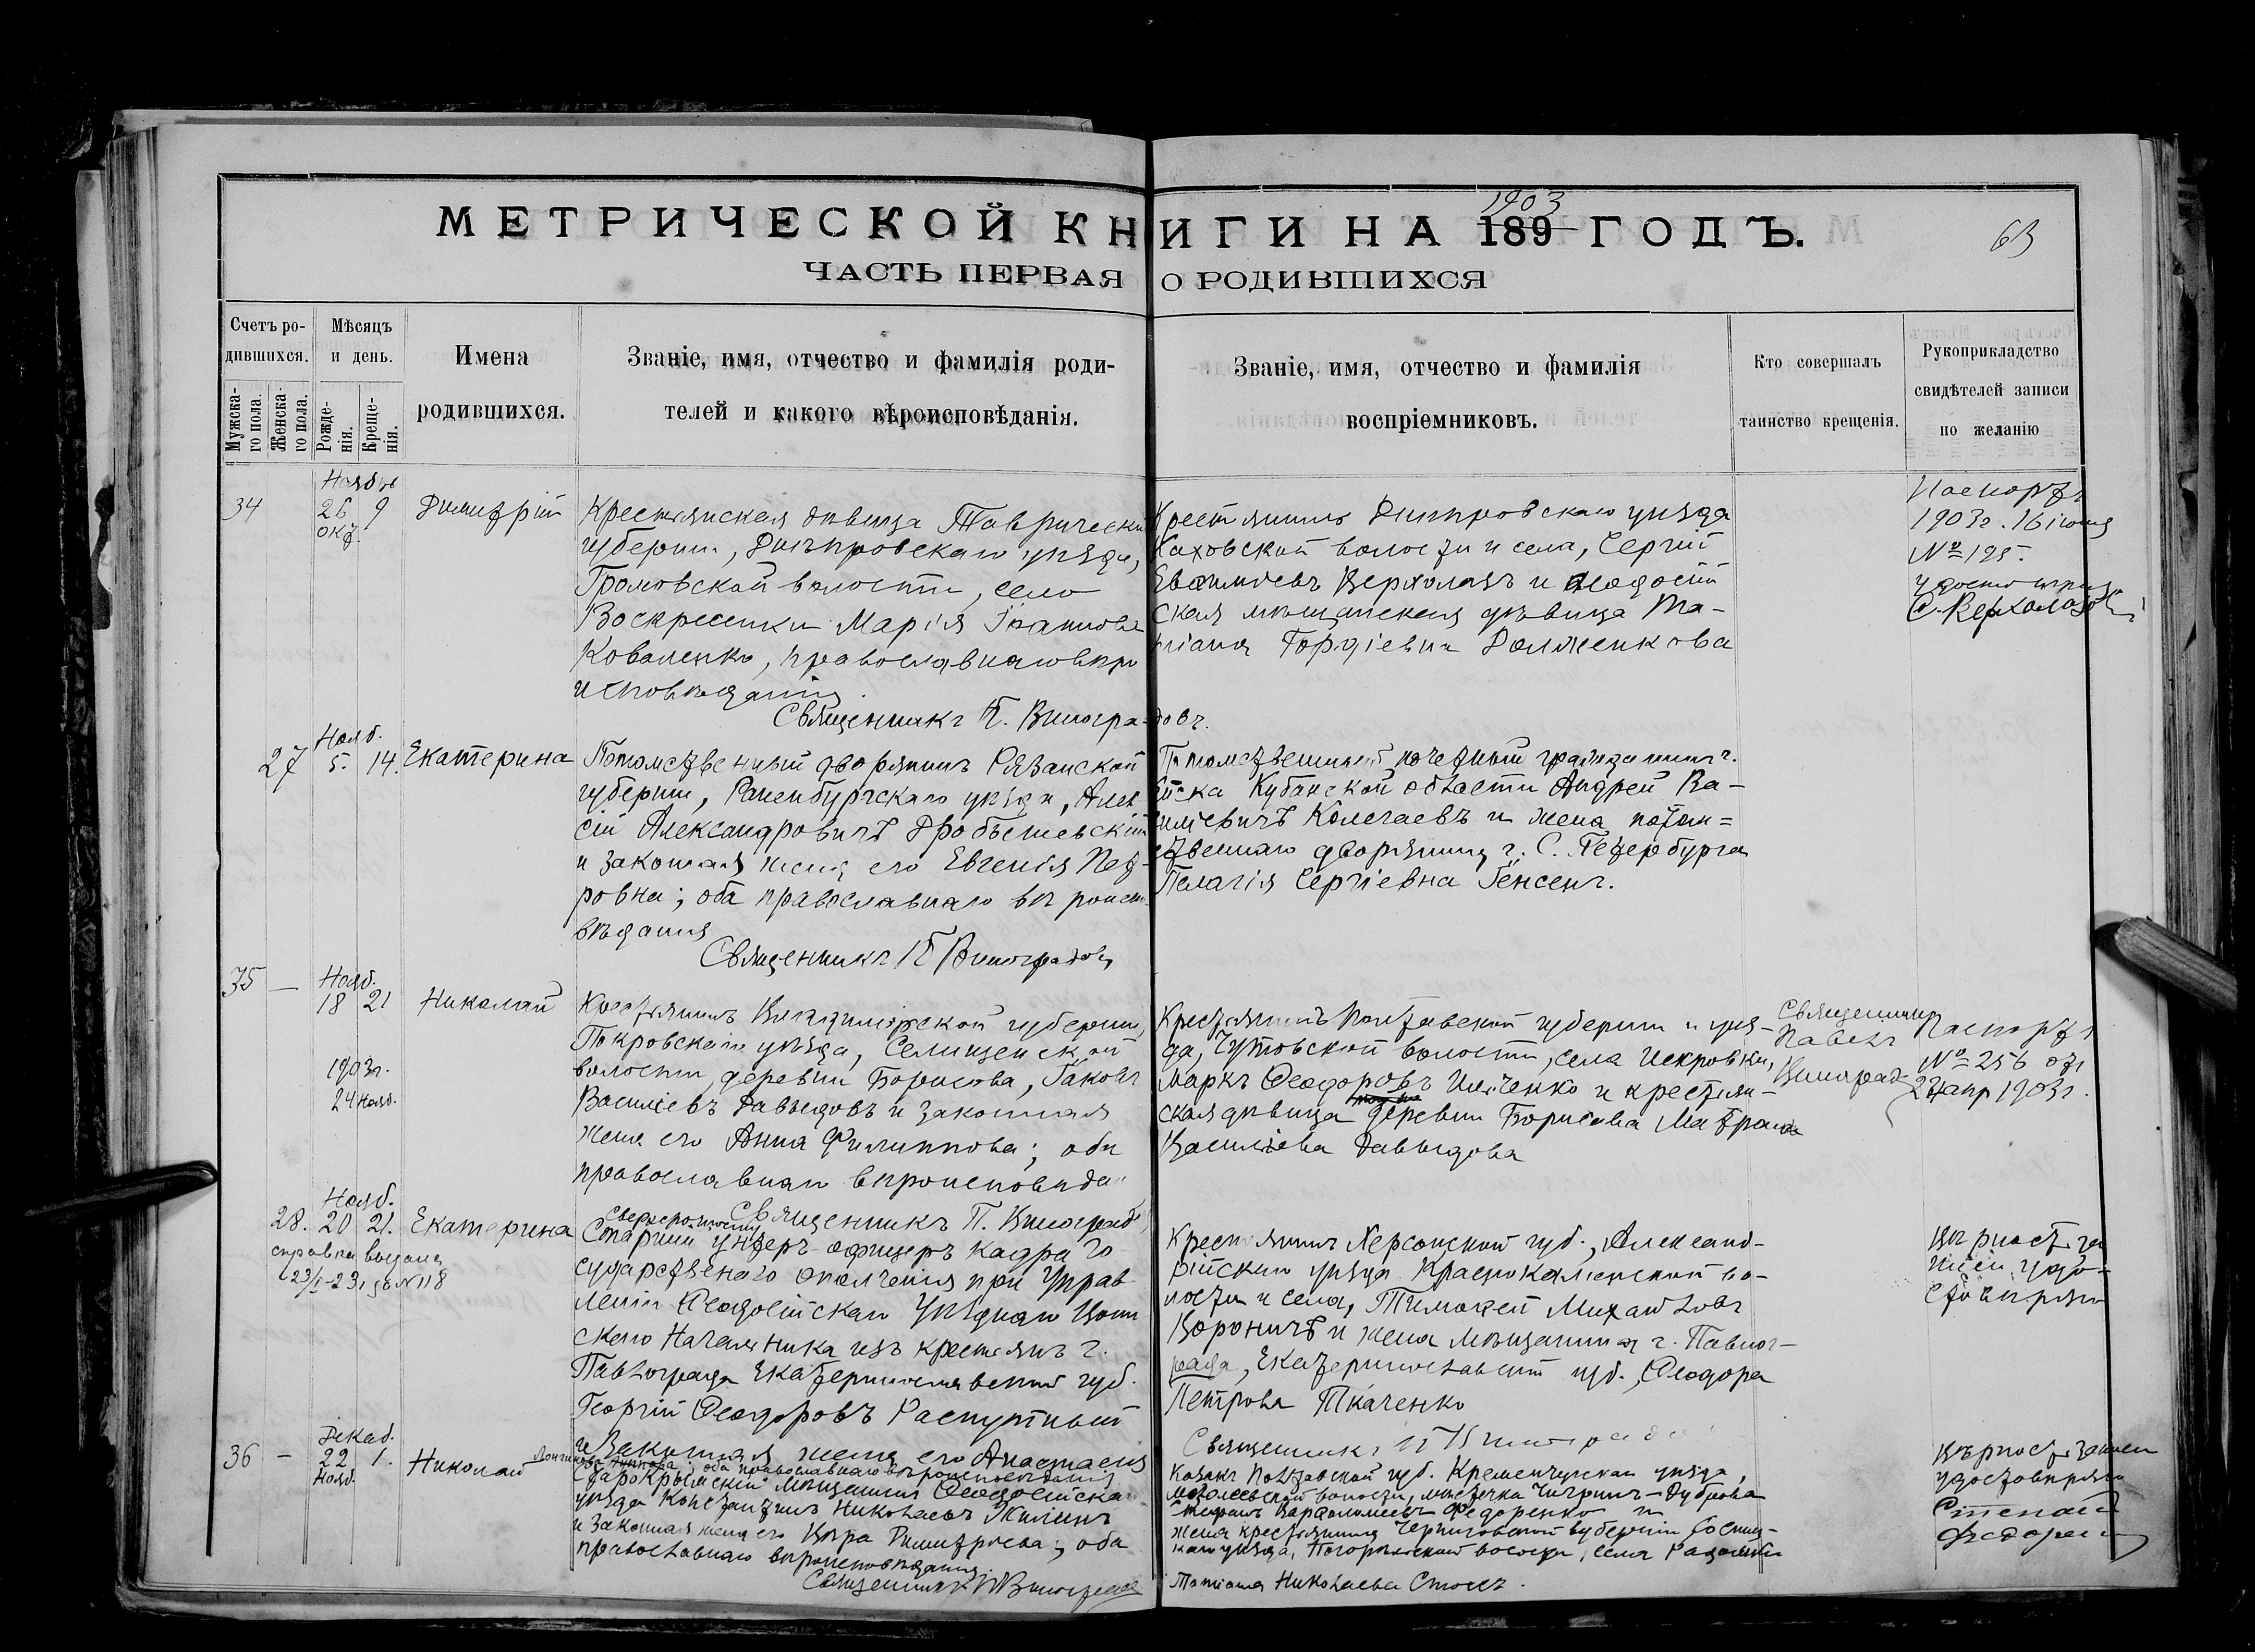 МЕТРИЧЕСКОЙ КНИГИ НА 189 ГОДЪ.
1903
63
ЧАСТЬ ПЕРВАЯ О РОДИВШИХСЯ
Счетъ ро-
дившихся.
Мужска-
го пола.
Женска-
го пола.
Мѣсяцъ
и день.
Рожде-
нія.
Креще-
нія.
Имена
родившихся.
Званіе, имя, отчество и фамилія роди-
телей и какого вѣроисповѣданія.
Званіе, имя, отчество и фамилія
воспріемниковъ.
Кто совершалъ
таинство крещенія.
Рукоприкладство
свидѣтелей записи
по желанію
34
Ноябр
26 9
окт.
Димитрій
Крестьянская дѣвица Таврическ
губерніи, Днѣпровскаго уѣзда,
Громовской волости, село
Воскресенки Марія Іоаннова
Коваленко, православнаго вѣро
исповѣданія.
Священникъ П. Виноградовъ.
Крестьянинъ Днѣпровскаго уѣзда
Каховской волости и села, Сергій
Евѳиміевъ Верхолазъ и Ѳеодосій
ская мѣщанская дѣвица Та-
тіана Гордіевна Долженкова
Паспортъ
1903г. 16 іюня
№ 195.
С. Верхолазов
27
Нояб.
5. 14.
Екатерина
Потомственный дворянинъ Рязанской
губерніи, Раненбургскаго уѣзда, Алек
сій Александровичъ Дробышевскій
и законная жена его Евгенія Пет-
ровна; оба православнаго вѣроиспо
вѣданія
Священникъ П Виноградовъ
Потомственный почетный гражданинъ г.
Ейска Кубанской области Андрей Ва-
силіевичъ Колегаевъ и жена потом=
ственнаго дворянина г. С. Петербурга
Пелагія Сергіевна Генсенъ.
35 —
Нояб.
18 21
1903г.
24 нояб.
Николай
Крестьянинъ Владимірской губерніи,
Покровскаго уѣзда, Селищенской
волости, деревни Борисова, Іаковъ
Василіевъ Давыдовъ и законная
жена его Анна Филиппова; оба
православнаго вѣроисповѣда
Священникъ П. Виноград
Крестьянинъ Полтавской губерніи и уѣз-
да, Чутовской волости, села Искровки,
Маркъ Ѳеодоровъ Ильченко и крестьян-
ская дѣвица деревни Борисова Матрона
Василіева Давыдова
Священникъ
Павелъ
Виноград
Паспортъ
№ 256 отъ
24 апр 1903г.
28.
Нояб.
20 21.
Екатерина
справка выдана
23/I-23 г за № 118
Сверхсрочный
Старшій унтеръ-офицеръ кадра Го
сударственнаго ополченія при Управ
леніи Ѳеодосійскаго Уѣзднаго Воин
скаго Начальника изъ крестьянъ г.
Павлограда Екатеринославской губ.
Георгій Ѳеодоровъ Распутный
и Законная жена его Анастасія
оба православнаго вѣроисповѣданія
Крестьянинъ Херсонской губ., Александ-
рійскаго уѣзда Краснокаменской во-
лости и села, Тимоѳей Михаиловъ
Вороничъ и жена мѣщанина г. Павлог-
рада, Екатеринославской губ., Ѳеодора
Петрова Ткаченко
Священникъ П Виноградо
Вѣрность за
писи удо-
стовѣряю
36 —
Декаб.
22 1.
Нояб.
Николай
Старокрымскій мѣщанинъ Ѳеодосійска
уѣзда Константинъ Николаевъ Жилинъ
и законная жена его Вѣра Димитріева; оба
православнаго вѣроисповѣданія.
Священникъ П Виноградов
Козакъ Полтавской губ. Кременчугскаго уѣзда,
волости, мѣстечка Чигринъ-Дуброва
Стефанъ Варѳоломеевъ Ѳедоренко и
жена крестьянина Черниговской губерніи Сосниц-
каго уѣзда, волости, села
Татіана Николаева
Вѣрность записи
удостовѣряю
Степан
Федорен